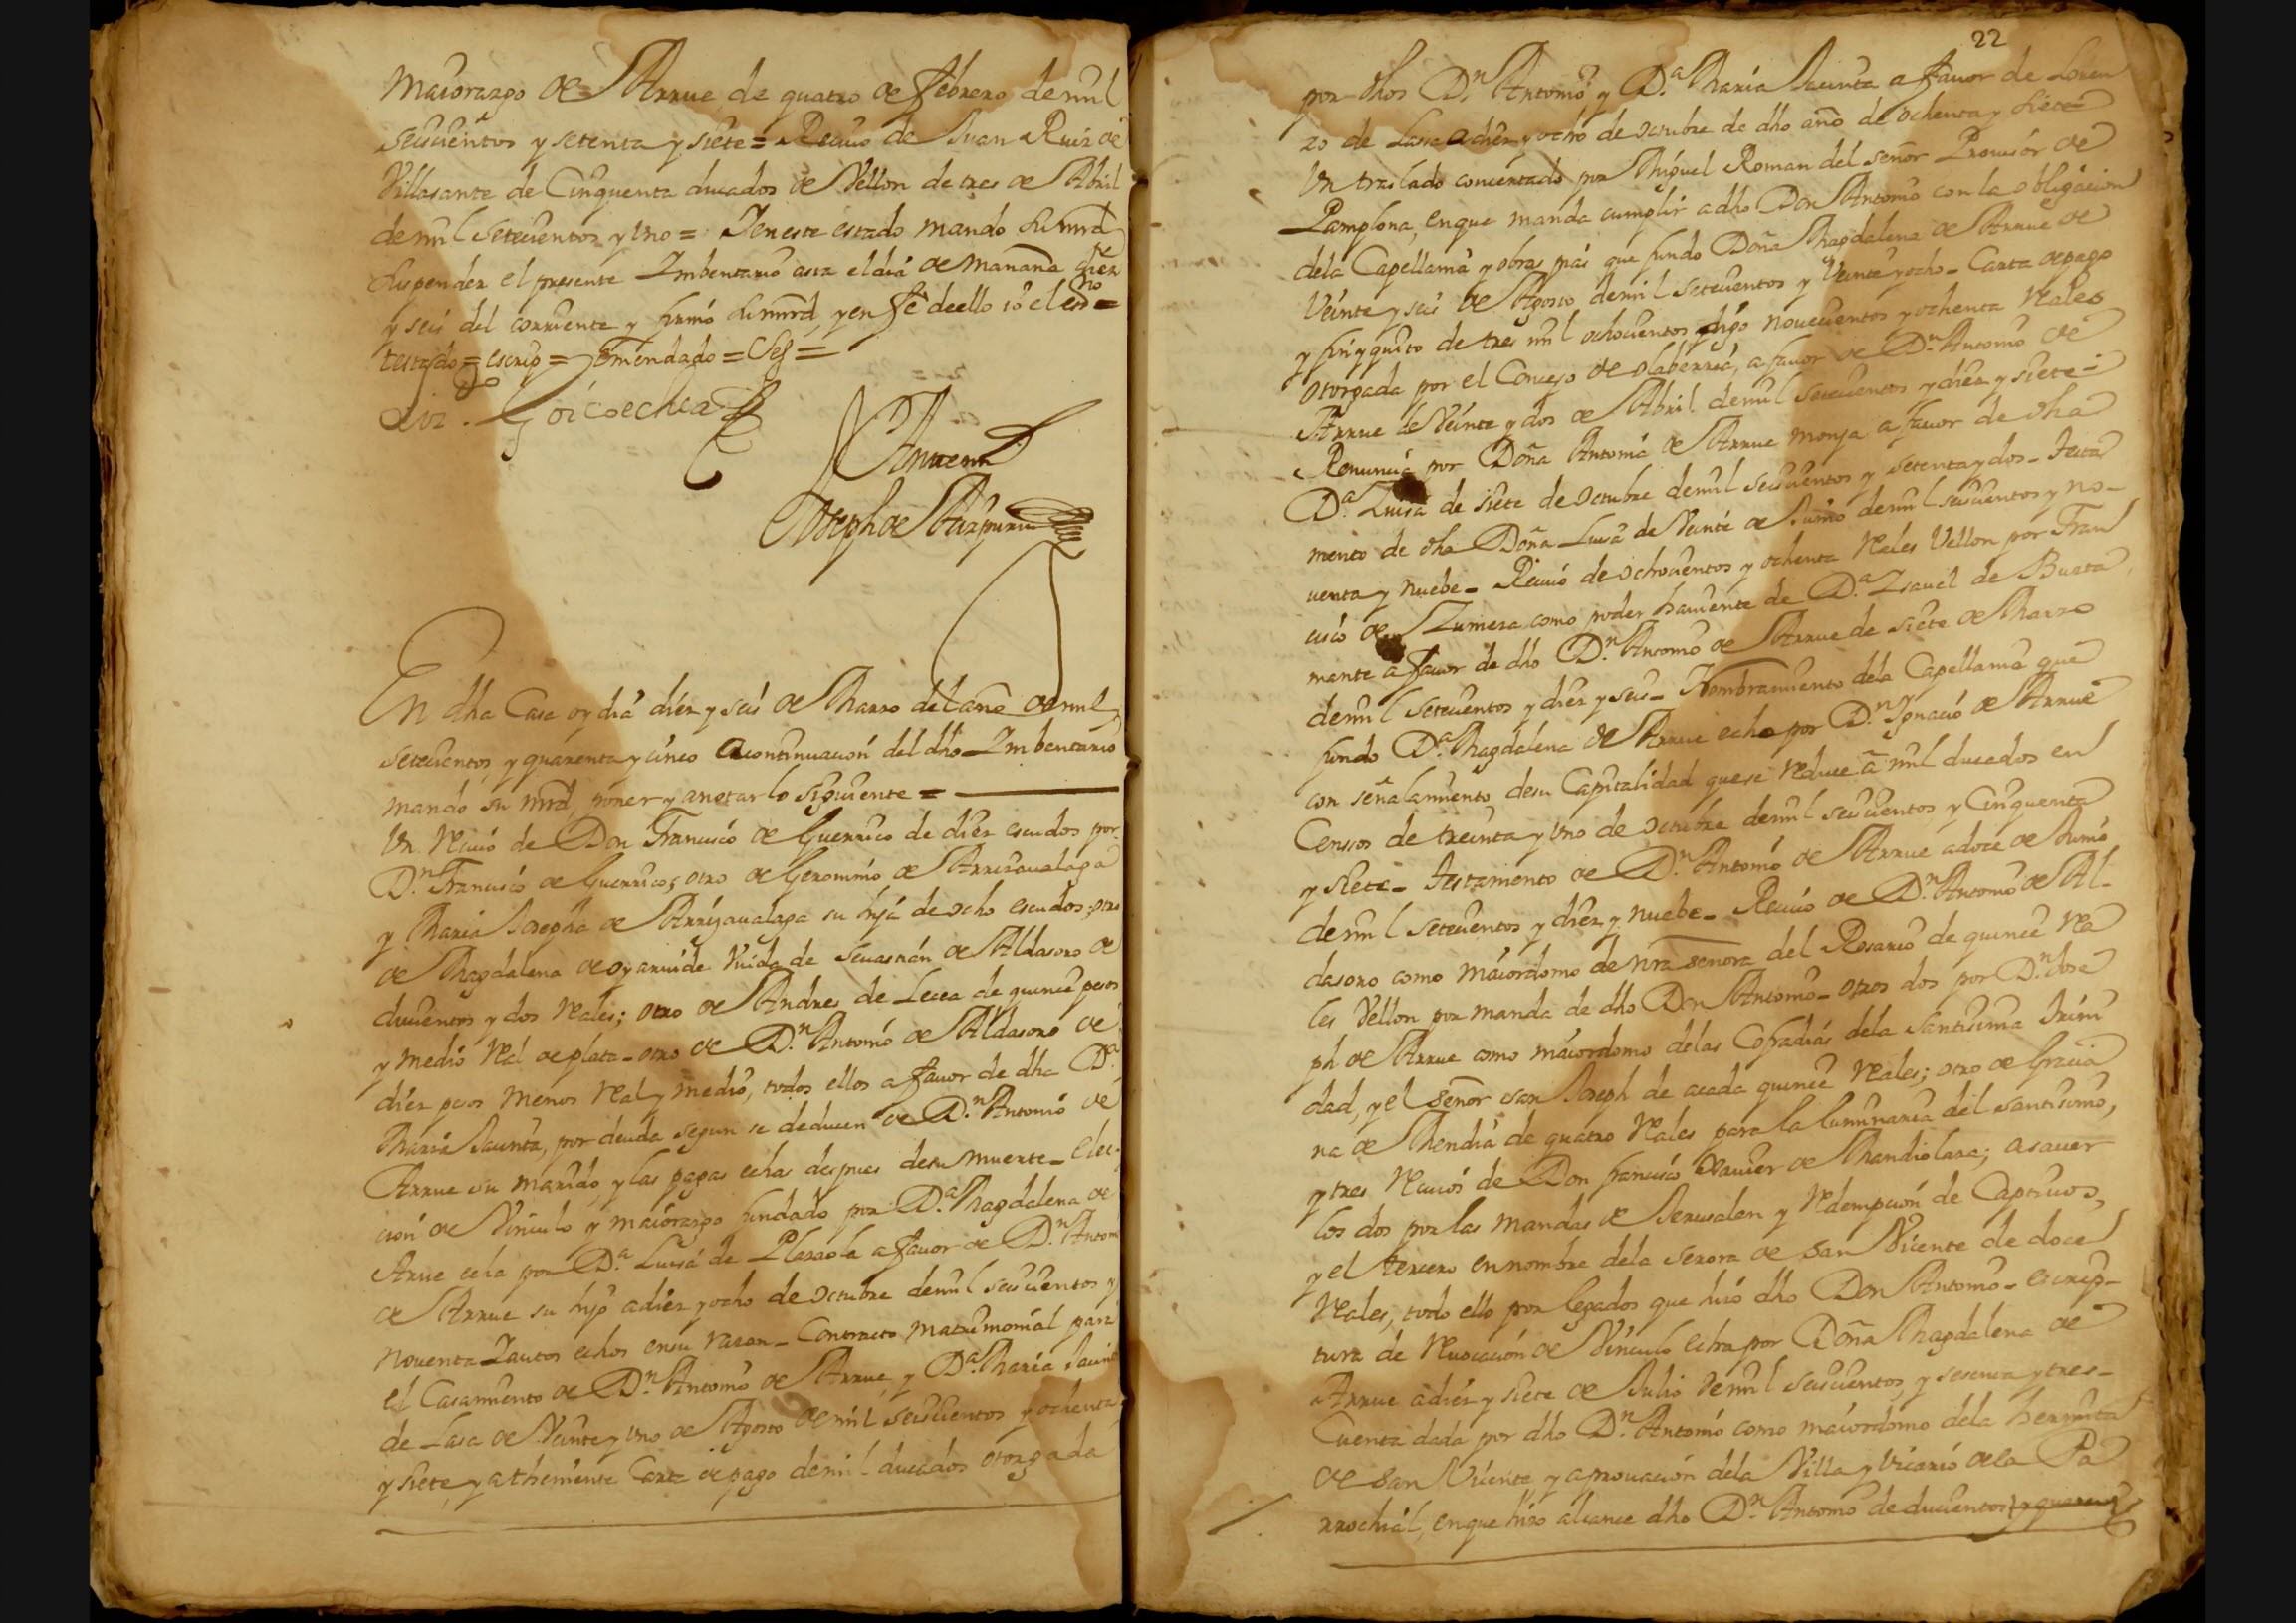 Maiorazgo de Arrue, de quatro de febrero de mil
seiscientos y setenta y siete = Reciuo de Juan Ruiz de
Villasante de Cinquenta ducados de Vellon de tres de Abril
de mil setecientos y vno = Y en este estado mando su mrd
suspender el presente Imbentario asta el dia de mañana diez
y seis del corriente y firmó su mrd, y en feé de ello io el essno =
testado = escrip = emendado = Ses =
Goicoechea
Antemi
Joseph de Aizpurua
En dha Casa oy dia diez y seis de Marzo del año de mil
setecientos y quarenta y cinco acontinuacion del dho Imbentario
mando su mrd, poner y anotar lo siguiente =
Vn reciuo de Don Francisco de Guerrico de diez escudos por
Dn. Francisco de Guerrico; otro de Geronimo de Arrizaualaga
y Maria Josepha de Arrizaualaga su hija de ocho escudos; otro
de Magdalena de Oyaruide Viuda de Seuastian de Aldasoro de
ducientos y dos reales; otro de Andres de Lecea de quince pesos
y medio real de plata - otro de Dn. Antonio de Aldasoro de
diez pesos menos real y medio, todos ellos a fauor de dha Da.
Maria Jacinta, por deuda segun se deducen de Dn. Antonio de
Arrue su marido, y las pagas echas despues de su muerte - Elec-
cion de Vinculo y maiorazgo fundado por Da. Magdalena de
Arrue echa por Da. Luisa de Plazaola a fauor de Dn. Antonio
de Arrue su hijo a diez y ocho de Octubre de mil seiscientos y
nouenta Y autos echos en su razon - Contracto matrimonial para
el Casamiento de Dn. Antonio de Arrue, y Da. Maria Jacinta
de Lasa de Veinte y vno de Agosto de mil seiscientos y ochenta
y siete, y a theniente Carta de pago de mil ducados otorgada
22
por dhos Dn. Antonio y Da. Maria Jacinta a fauor de Loren
zo de Lasa a diez y ocho de Octubre de dho año de ochenta y siete -
Vn traslado concertado por Miguel Roman del señor Prouisor de
Pamplona, en que manda cumplir a dho Don Antonio con la obligacion
de la Capellania y obras pias que fundo Doña Magdalena de Arrue de
Veinte y seis de Agosto de mil setecientos y Veinte y ocho - Carta de pago
y finiquito de tres mil ochocientos digo nouecientos y ochenta reales
otorgada por el Concejo de Olaberria, a fauor de Dn. Antonio de
Arrue de Veinte y dos de Abril de mil setecientos y diez y siete -
Renuncia por Doña Antonia de Arrue monja a fauor de dha
Da. Luisa de siete de Octubre de mil seiscientos y setenta y dos - Testa
mento de dha Doña Luisa de Veinte de Junio de mil seiscientos y no-
uenta y nuebe - Reciuo de ochocientos y ochenta reales Vellon por Fran
cisco de Zumeza como poder hauiente de Da. Isauel de Busta
mante a fauor de dho Dn. Antonio de Arrue de siete de Marzo
de mil setecientos y diez y seis - Nombramiento de la Capellania que
fundo Da. Magdalena de Arrue echo por Dn. Ygnacio de Arrue
con señalamiento de su Capitalidad que se reduce á mil ducados en
Censos de treinta y vno de Octubre de mil seiscientos y Cinquenta
y siete - Testamento de Dn. Antonio de Arrue a doce de Junio
de mil setecientos y diez y nuebe - Reciuo de Dn. Antonio de Al-
dasoro como maiordomo de nra señora del Rosario de quince rea
les Vellon por manda de dho Don Antonio - Otros dos por Dn. Jose
ph de Arrue como maiordomo de las Cofradias de la Santisima Trini
dad, y el señor san Joseph de acada quince reales; otro de Gracia
na de Mendia de quatro reales para la luminaria del santisimo,
y tres reciuos de Don francisco Xauier de Mandiolara; asauer
los dos por las mandas de Jerusalen y redempcion de Captiuos,
y el tercero en nombre de la serora de san Vicente de doce
reales, todo ello por legados que hizo dho Don Antonio - Escrip-
tura de reuocacion de Vinculo echa por Doña Magdalena de
Arrue a diez y siete de Julio de mil seiscientos y sesenta y tres -
Cuenta dada por dho Dn. Antonio como maiordomo de la hermita
de san Vicente, y aprouacion de la Villa y Vicario de la Pa
rrochial, en que hizo alcance dho Dn. Antonio de ducientos y quarenta